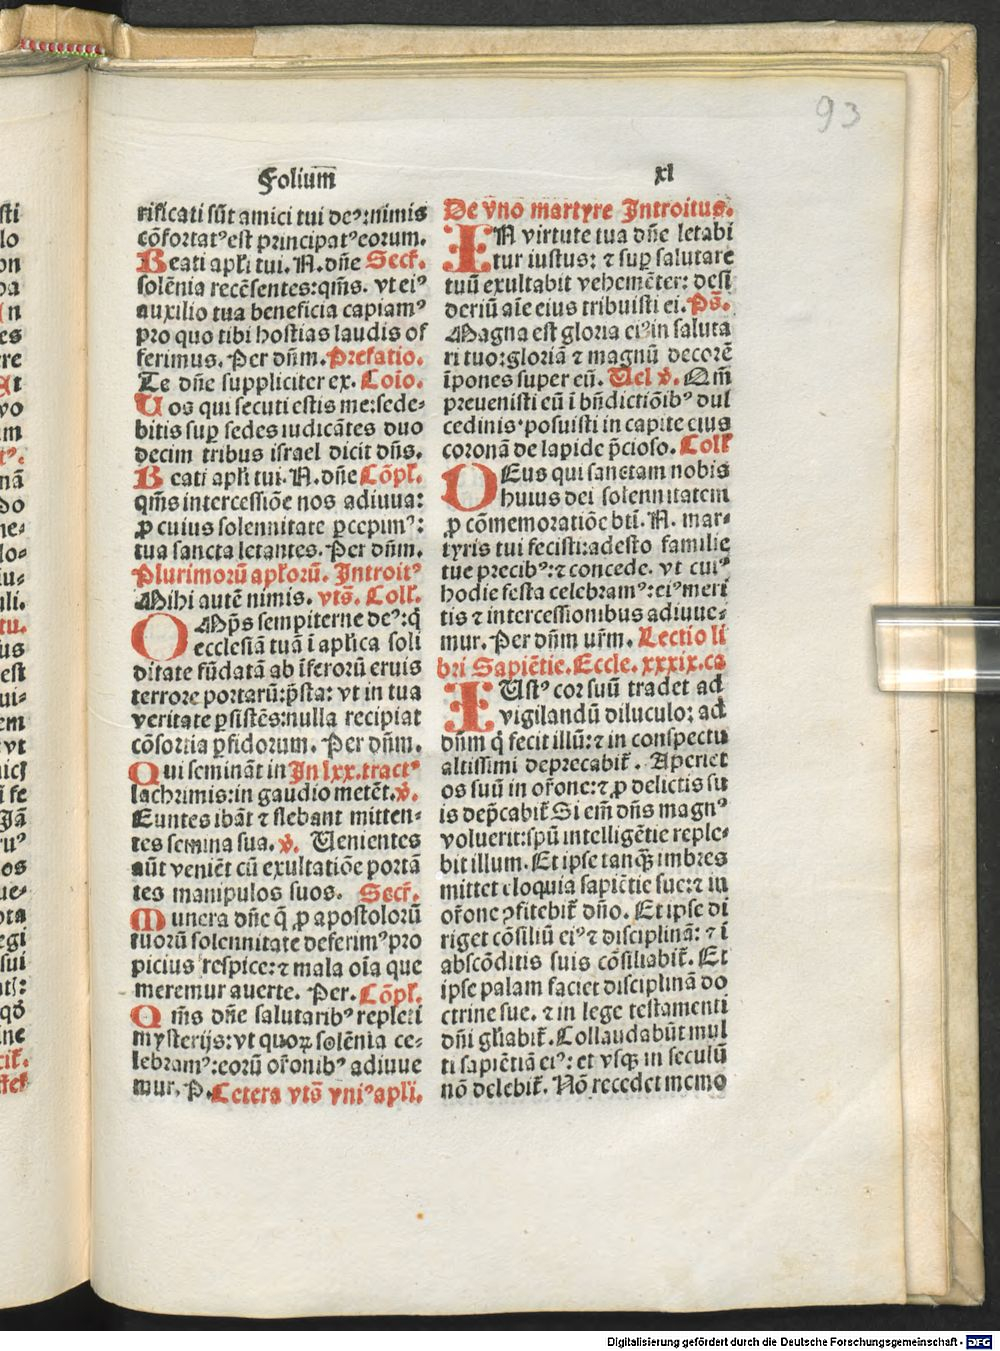 93
Folium̅ xl
rificati sūt amici tui deꝰ: nimis
cōfortatꝰ est principatꝰ eorum.
Beati apłi tui. N. dn̄e Secr̄.
solēnia recēsentes: qm̄s. vt eiꝰ
auxilio tua beneficia capiamꝰ
pro quo tibi hostias laudis of
ferimus. Per dn̄m. Prefatio.
Te dn̄e suppliciter ex. Coīo.
Uos qui secuti estis me: sede-
bitis sup̄ sedes iudicātes duo
decim tribus israel dicit dn̄s.
Beati apłi tui. N. dn̄e Cōpł.
qm̄s intercessiōe nos adiuua:
ꝓ cuius solennitate ꝑcepimꝰ:
tua sancta letantes. Per dn̄m.
Plurimorū apłorū. Introitꝰ
Mihi autē nimis. vts̄. Coll̄.
OMp̄s sempiterne deꝰ: q̄
ecclesiā tuā ī apl̄ica soli
ditate fūdatā ab īferorū eruis
terrore portarū: p̄sta: vt in tua
veritate ꝑsistēs: nulla recipiat
cōsortia ꝑfidorum. Per dn̄m.
Qui semināt in In lxx. tractꝰ
lachrimis: in gaudio metēt. v̄.
Euntes ibāt ⁊ flebant mitten-
tes semina sua. v̄. Uenientes
aūt veniēt cū exultatiōe portā
tes manipulos suos. Secr̄.
Munera dn̄e q̄ ꝓ apostolorū
tuorū solennitate deferimꝰ pro
picius respice: ⁊ mala oīa que
meremur auerte. Per. Cōpł.
Qm̄s dn̄e salutaribꝰ repleti
mysterijs: vt quoꝝ solēnia ce-
lebramꝰ: eorū or̄onibꝰ adiuue
mur. P. Cetera vts̄ vniꝰ apłi.
De v̄no martyre Introitus.
IN virtute tua dn̄e letabi
tur iustus: ⁊ sup̄ salutare
tuū exultabit vehemēter: desi
deriū aīe eius tribuisti ei. Ps̄.
Magna est gloria eiꝰ in saluta
ri tuo: gloriā ⁊ magnū decorē
īpones super eū. Uel v̄. Qm̄
preuenisti eū ī bn̄dictiōibꝰ dul
cedinis. posuisti in capite eius
coronā de lapide p̄cioso. Coll̄
DEus qui sanctam nobis
huius dei solennitatem
ꝓ cōmemoratiōe bt̄i. N. mar-
tyris tui fecisti: adesto familie
tue precibꝰ: ⁊ concede. vt cuiꝰ
hodie festa celebramꝰ: eiꝰ meri
tis ⁊ intercessionibus adiuue-
mur. Per dn̄m nr̄m. Lectio li
bri Sapiētie. Eccle. xxxix. ca
IUstꝰ cor suū tradet ad
vigilandū diluculo: ad
dn̄m q̄ fecit illū: ⁊ in conspectu
altissimi deprecabit̄. Aperiet
os suū in or̄one: ⁊ ꝓ delictis su
is dep̄cabit̄ Si em̄ dn̄s magnꝰ
voluerit: spū intelligētie reple-
bit illum. Et ipse tanq̄ imbres
mittet eloquia sapiētie sue: ⁊ in
or̄one ꝯfitebit̄ dn̄o. Et ipse di
riget cōsiliū eiꝰ ⁊ disciplinā: ⁊ ī
abscōditis suis cōsiliabit̄. Et
ipse palam faciet disciplinā do
ctrine sue. ⁊ in lege testamenti
dn̄i gl̄iabit̄. Collaudabūt mul
ti sapiētiā eiꝰ: et vsq̄ in seculū
nō delebit̄. Nō recedet memo
Digitalisierung gefördert durch die Deutsche Forschungsgemeinschaft - DFG